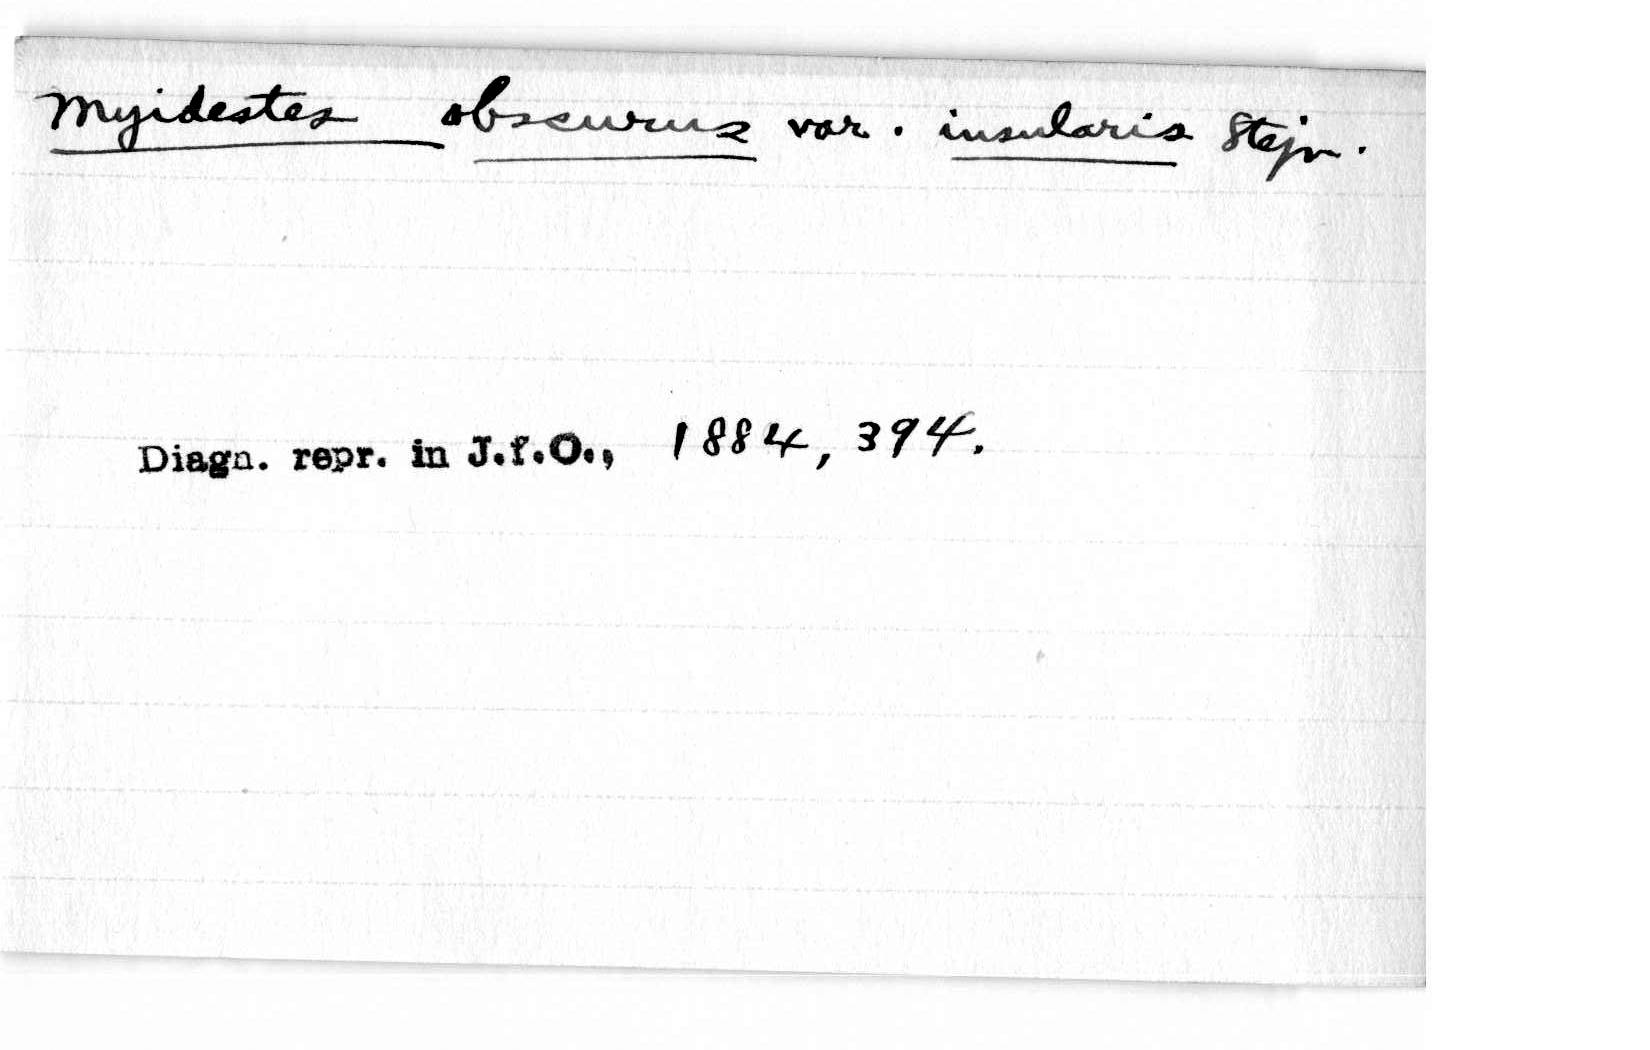 Myidestes obscurus var. insularis Stejn.
Diagn. repr. in J.f.O., 1884, 394.